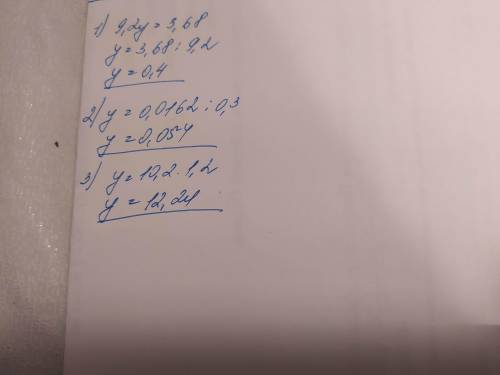 1) 9,2y = 3,68
y = 3,68 : 9,2
y = 0,4
2) y = 0,0162 : 0,3
y = 0,054
3) y = 10,2 · 1,2
y = 12,24